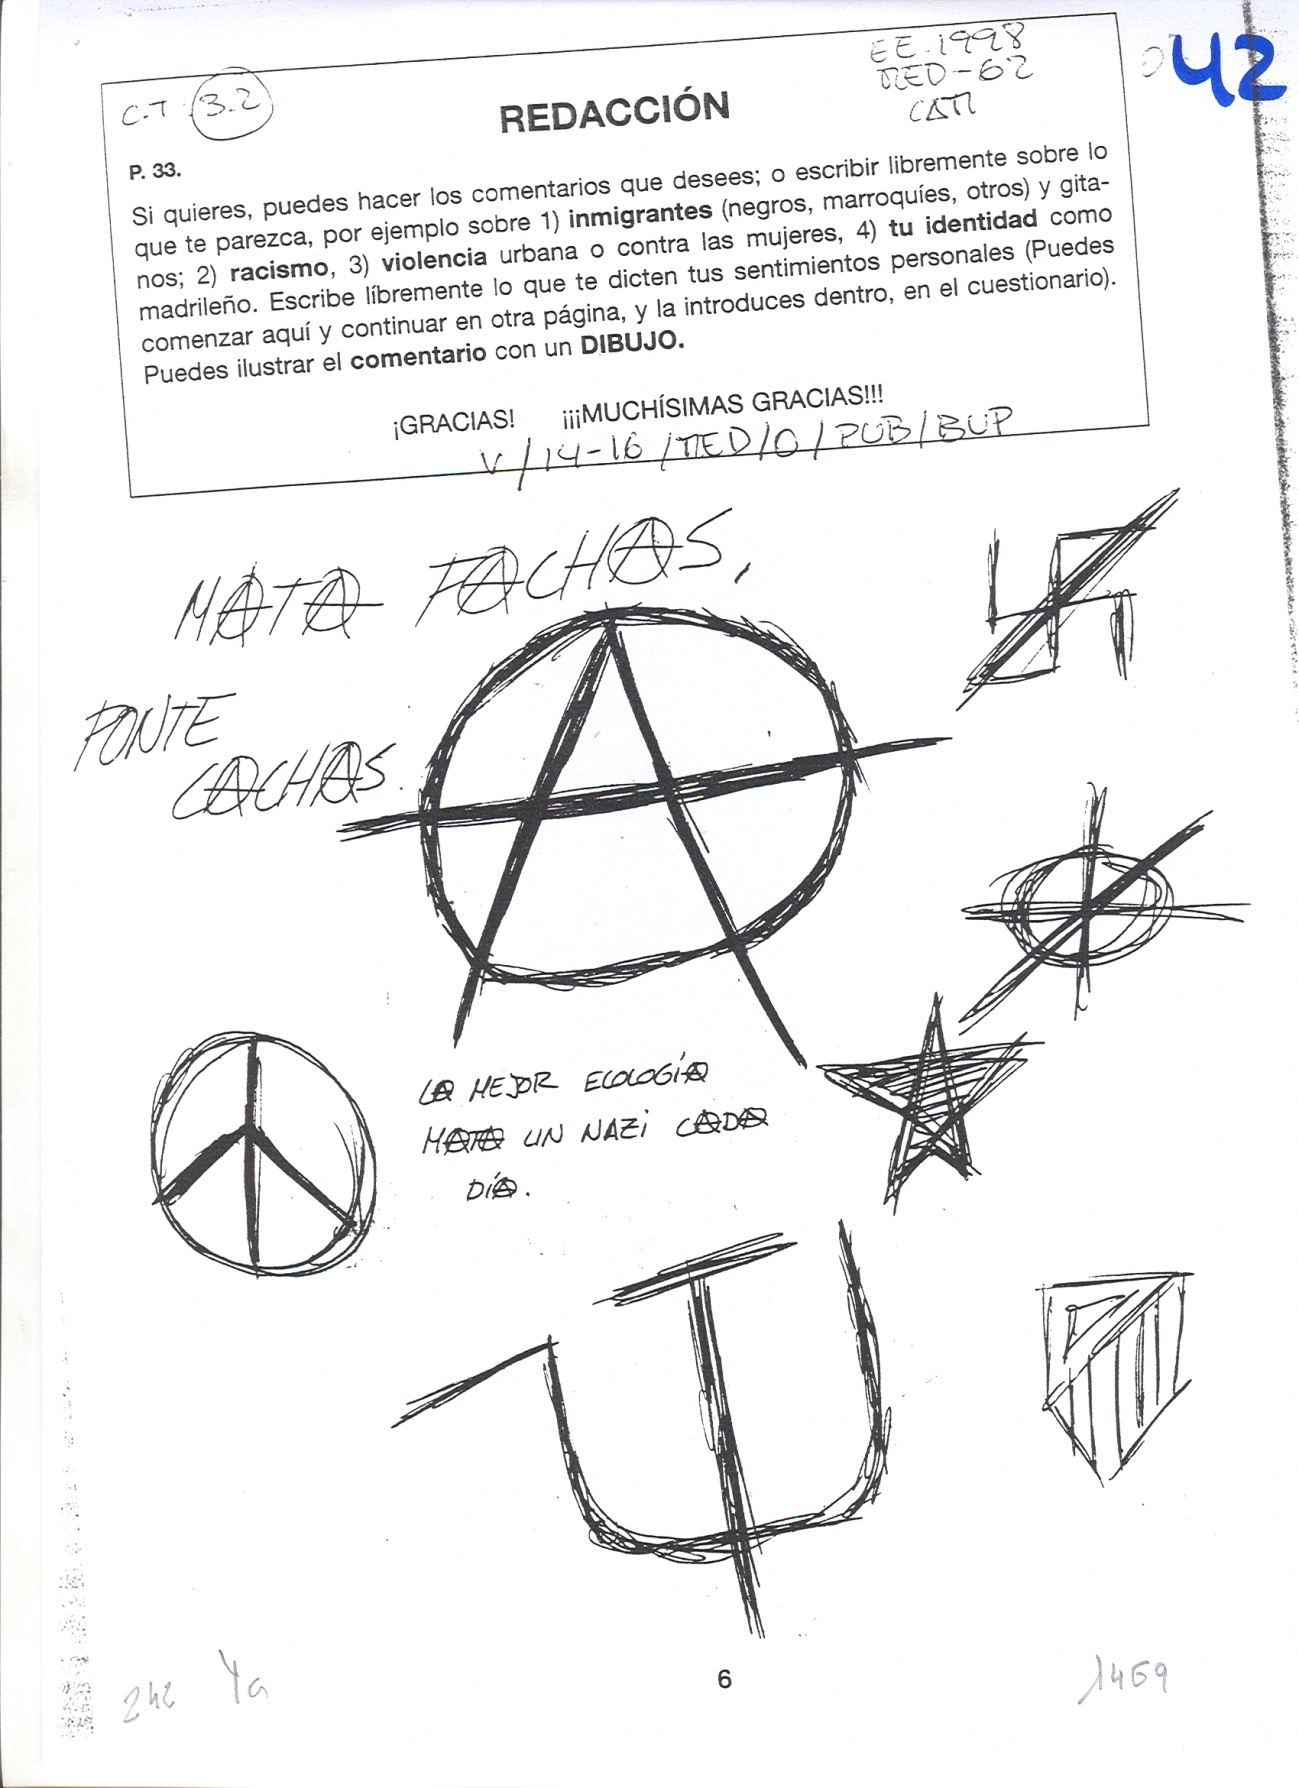 C.T. 3.2
EE-1998
MED-62
CATI
042
REDACCIÓN
P. 33.
Si quieres, puedes hacer los comentarios que desees; o escribir libremente sobre lo
que te parezca, por ejemplo sobre 1) inmigrantes (negros, marroquíes, otros) y gita-
nos; 2) racismo, 3) violencia urbana o contra las mujeres, 4) tu identidad como
madrileño. Escribe líbremente lo que te dicten tus sentimientos personales (Puedes
comenzar aquí y continuar en otra página, y la introduces dentro, en el cuestionario).
Puedes ilustrar el comentario con un DIBUJO.
¡GRACIAS! ¡¡¡MUCHÍSIMAS GRACIAS!!!
V/14-16/MED/O/PUB/BUP
MATA FACHAS,
PONTE
CACHAS.
LA MEJOR ECOLOGÍA
MATA UN NAZI CADA
DÍA.
242 Ya
6
1459